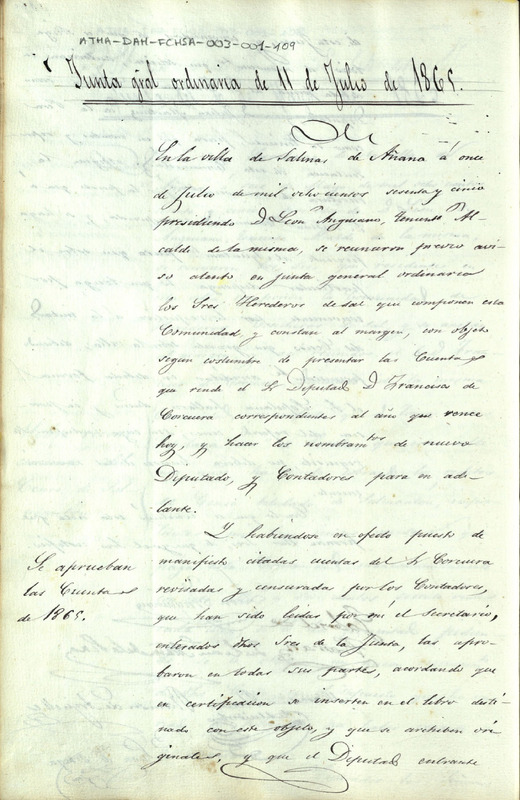 ATHA-DAH-FCHSA-003-001-109
Junta gral ordinaria de 11 de Julio de 1865.
En la villa de Salinas de Añana á once
de Julio de mil ochocientos sesenta y cinco
presidiendo D. Leon Anguiano, Teniente Al-
calde de la misma, se reunieron previo avi-
so atento en junta general ordinaria
los Sres Herederos de sal que componen esta
Comunidad y constan al margen, con objeto
segun costumbre de presentar las Cuentas
que rinde el Sr Diputado D. Francisco de
Corcuera correspondientes al año que vence
hoy, y hacer los nombramtos de nuevo
Diputado, y Contadores para en ade-
lante.
Y habiendose en efecto puesto de
manifiesto citadas cuentas del Sr Corcuera
revisadas y censuradas por los Contadores,
que han sido leidas por mí el Secretario,
enterados dhos Sres de la Junta, las apro-
baron en todas sus partes, acordando que
en certificacion se inserten en el libro desti-
nado con este objeto, y que se archiben ori-
ginales, y que el Diputado entrante
Se aprueban
las Cuentas
de 1865.